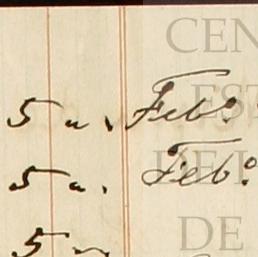 5 a. Febº.
5 a. Febº.
5 a.
CEN
EST
DE I
DE